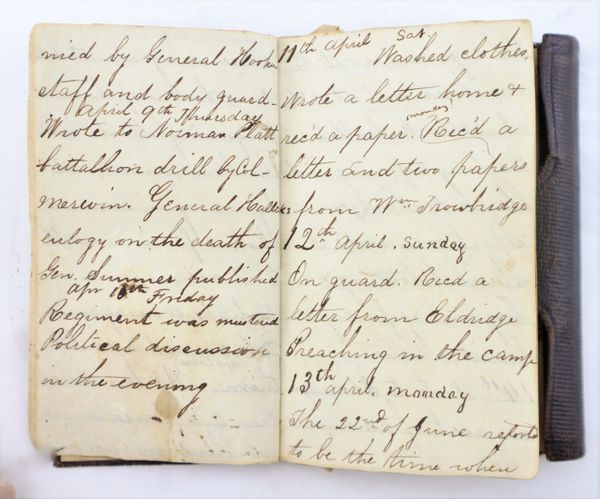 nied by General Hooker
staff and body guard-
April 9th Thursday
Wrote to Norman Platt
battalhon drill by Col-
merwin. General Hallecks
eulogy on the death of
Gen. Sumner published
Apr 10th Friday
Regiment was mustered
Political discussion
in the evening
11th April Sat. Washed clothes.
Wrote a letter home &
rec'd a paper. Rec'd a
letter and two papers
from Wm Trowbridge
12th April. Sunday
On guard. Rec'd a
letter from Eldridge
Preaching in the camp
13th April. Monday
The 22nd of June reports
to be the time when